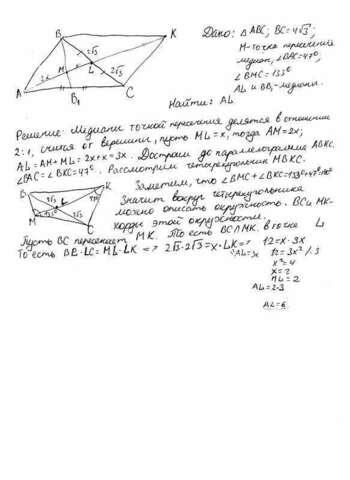 Дано: △ABC; BC=4√3;
M-точка пересечения
медиан, ∠BAC=47°,
∠BMC=133°
AL и BB₁-медианы.
Найти: AL
B
K
2√3
L
M
2x
2√3
A
B₁
C
Решение: Медианы точкой пересечения делятся в отношении
2:1, считая от вершины, пусть ML=x, тогда AM=2x;
AL=AM+ML=2x+x=3x. Достроим до параллелограмма ABKC.
∠BAC=∠BKC=47°. Рассмотрим четырехугольник MBKC.
Заметим, что ∠BMC+∠BKC=133°+47°=180°
Значит вокруг четырехугольника
можно описать окружность. BC и MK-
хорды этой окружности.
B
K
L
M
133°
2√3
C
Пусть BC пересекает MK. То есть BC∩MK в точке L
То есть BL·LC=ML·LK => 2√3·2√3=x·LK => 12=x·3x
AL=3x
12=3x² /:3
x²=4
x=2
ML=2
AL=2·3
AL=6.